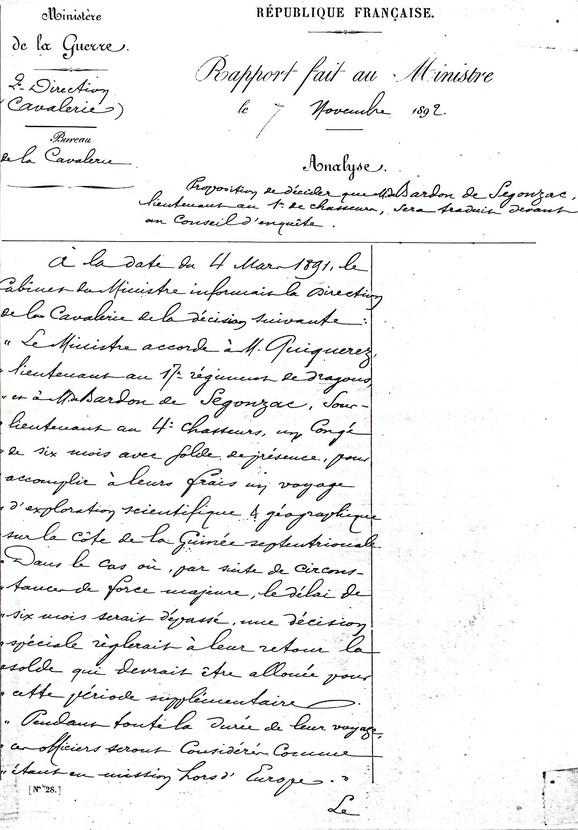 Ministère
de la Guerre.
2e Direction
(Cavalerie)
Bureau
de la Cavalerie
RÉPUBLIQUE FRANÇAISE.
Rapport fait au Ministre
le 7 Novembre 1892.
Analyse.
Proposition de décider que M. Bardon de Segonzac,
lieutenant au 1er de chasseurs, sera traduit devant
un Conseil d'enquête.
À la date du 4 Mars 1891, le
Cabinet du Ministre informait la Direction
de la Cavalerie de la décision suivante :
" Le Ministre accorde à M. Quiquerez,
" lieutenant au 17e régiment de dragons,
" et à M. Bardon de Segonzac, Sous-
lieutenant au 4e chasseurs, un Congé
" de six mois avec solde de présence, pour
accomplir à leurs frais un voyage
" d'exploration scientifique & géographique
sur la côte de la Guinée septentrionale.
" Dans le cas où, par suite de circons-
" tances de force majeure, le délai de
" six mois serait dépassé, une décision
" spéciale règlerait à leur retour la
" solde qui devrait être allouée pour
" cette période supplémentaire.
" Pendant toute la durée de leur voyage,
" ces officiers seront Considérés Comme
" étant en mission hors d'Europe. "
[N° 28.]
Le